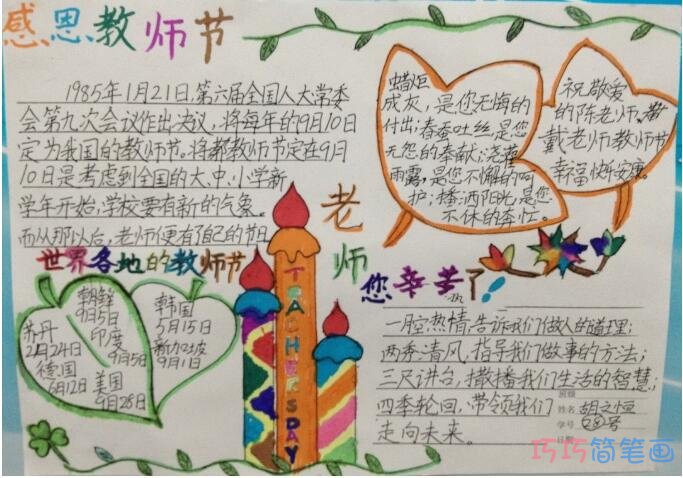 感恩教师节
1985年1月21日,第六届全国人大常委
会第九次会议作出决议,将每年的9月10日
定为我国的教师节。将教师节定在9月
10日是考虑到全国的大、中、小学新
学年开始,学校要有新的气象。
而从那以后,老师便有了自己的节日
蜡炬
成灰,是您无悔的
付出;春蚕吐丝是您
无怨的奉献;浇灌
雨露,是您不懈的呵
护;播洒阳光,是您
不休的责任。
祝敬爱
的陈老师、
戴老师教师节
幸福快乐安康。
老师
您辛苦了!
世界各地的教师节
苏丹
2月24日
德国
6月12日
朝鲜
9月5日
印度
9月5日
美国
9月28日
韩国
5月15日
新加坡
9月1日
TEACHERSDAY
一月空热情,告诉我们做人的道理;
两季清风,指导我们做事的方法;
三尺讲台,撒播我们生活的智慧;
四季轮回,带领我们
走向未来。
班级
姓名 胡文恒
学号 62号
日期
巧巧简笔画